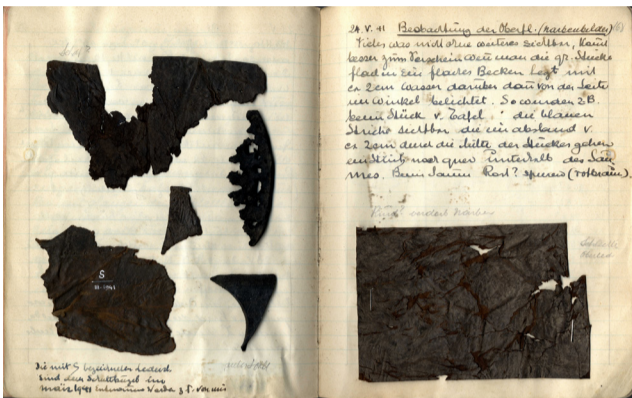 S
III-1941
Die mit S bezeichneten Lederst
sind dem Schutthügel im
März 1941 entnommen
24. V. 41 Beobachtung der Oberfl. (Narbenbilder)
Vieles was nicht ohne weiteres sichtbar, kommt
besser zum Vorschein wenn man die gr. Stücke
flach in ein flaches Becken legt mit
ca 2cm Wasser darüber dann von der Seite
im Winkel belichtet. So wurden z.B.
beim Stück v. Tafel : die blauen
Striche sichtbar die im abstand v.
ca 2cm durch die Mitte des Stückes gehen
ein Stück noch quer unterhalb des Sau
mes. Beim Saum Rost? spuren (rotbraun).
Narben